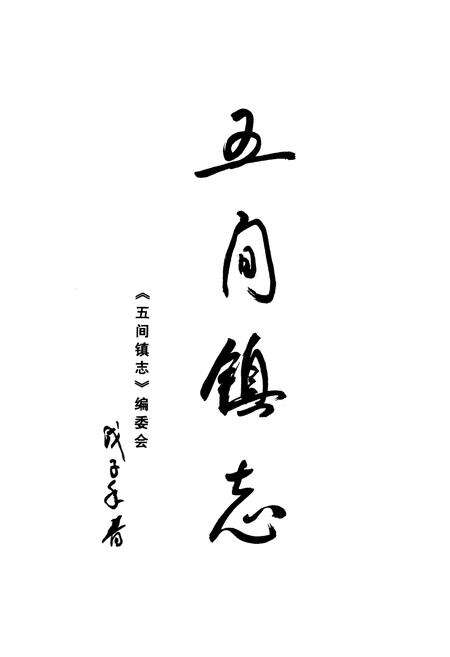 五间镇志
《五间镇志》编委会
戊子年春